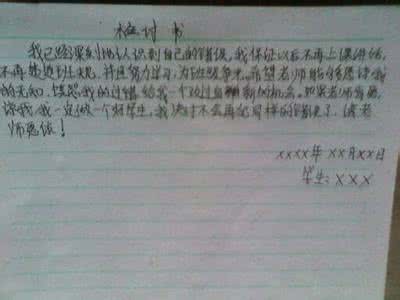 检讨书
我已经深刻地认识到自己的错误,我保证以后不再上课讲话,
不再违返班规,并且努力学习,为班级争光。希望老师能够原谅我
的无知,饶恕我的过错,给我一个改过自新的机会。如果老师肯原
谅我,我一定做一个好学生,我决对不会再犯同样的错误了,请老
师宽恕!
xxxx年xx月xx日
学生:XXX